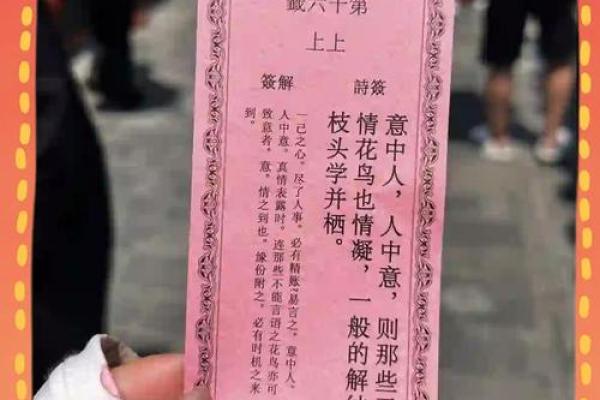 第十六籤
上上
簽詩
意中人，人中意，则那些
情花鸟也情凝，一般的解
枝头学并栖。
解簽
一己之心。尽了人事。必有精账?易言之。意中人。
人中意。真情表露时。连那些不能言语之花鸟亦可
致意者。意。情之到也。缘份附之。必有时机之来
到。